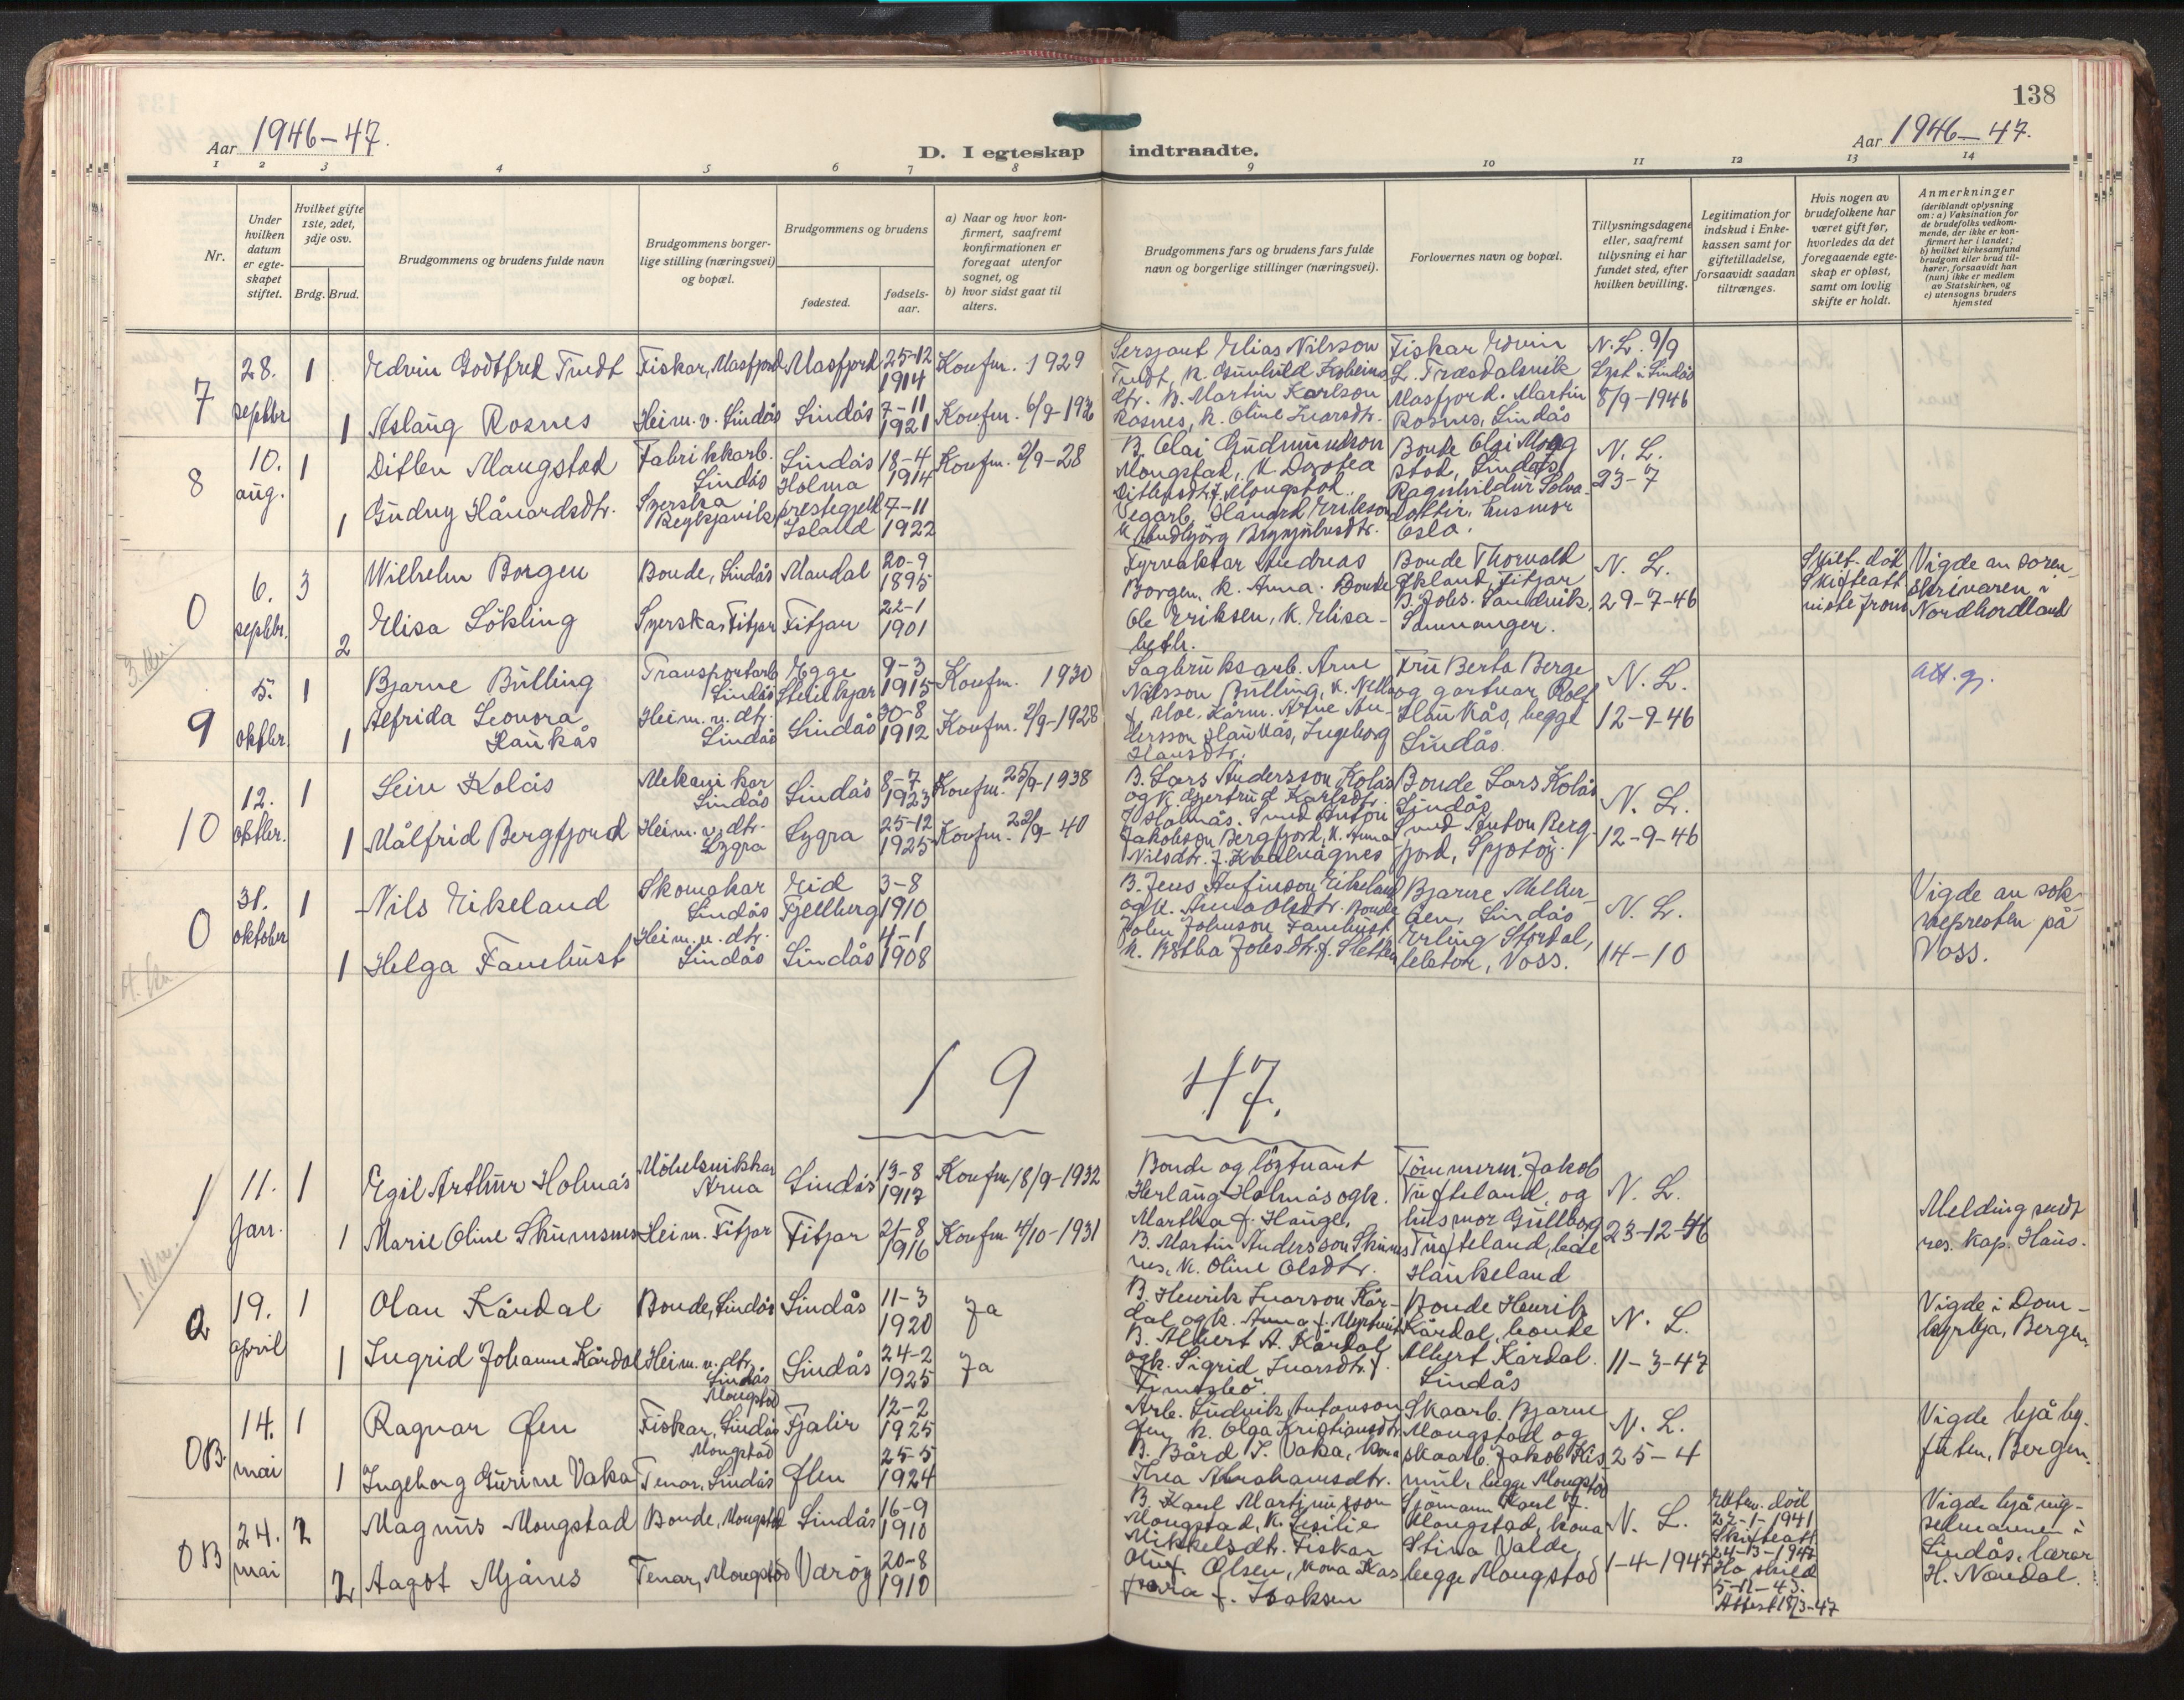 138
Aar 1946-47.
D. I egteskap indtraadte.
Aar 1946-47.
1 2 3 4 5 6 7 8 9 10 11 12 13 14
Nr.
Under hvilken datum er egte-skapet stiftet.
Hvilket gifte 1ste, 2det, 3dje osv.
Brdg. Brud.
Brudgommens og brudens fulde navn
Brudgommens borger-lige stilling (næringsvei) og bopæl.
Brudgommens og brudens
fødested.
fødsels-aar.
a) Naar og hvor kon-firmert, saafremt konfirmationen er foregaat utenfor sognet, og
b) hvor sidst gaat til alters.
Brudgommens fars og brudens fars fulde navn og borgerlige stillinger (næringsvei).
Forlovernes navn og bopæl.
Tillysningsdagene eller, saafremt tillysning ei har fundet sted, efter hvilken bevilling.
Legitimation for indskud i Enke-kassen samt for giftetilladelse, forsaavidt saadan tiltrænges.
Hvis nogen av brudefolkene har været gift før, hvorledes da det foregaaende egte-skap er opløst, samt om lovlig skifte er holdt.
Anmerkninger
(deriblandt oplysning om: a) Vaksination for de brudefolks vedkom-mende, der ikke er kon-firmert her i landet;
b) hvilket kirkesamfund brudgom eller brud til-hører, forsaavidt han (hun) ikke er medlem av Statskirken, og
c) utensogns bruders hjemsted
7
28. septbr
1
Edvin Godtfred
Fiskar, Masfjord
Masfjord
25-12 1914
Konfm. 1929
Sersjant Elias Nilsson
Fiskar Edvin
N. L. 9/9
Lyst i Lindås
8/9-1946
1
Aslaug Rosnes
Heim. v. Lindås
Lindås
7-11 1921
Konfm.
B. Martin Karlson
Rosnes, k. Oline Ivarsdtr.
Masfjord. Martin
Rosnes, Lindås
8
10. aug.
1
Ditlev Mongstad
Fabrikkarb. Lindås
Lindås
18-4 1914
Konfm. 2/9-28
B. Olai Gudmundson
Mongstad, k. Dorotea
Ditlevsdtr. f. Mongstad.
Bonde Olai Mong
stad, Lindås
N. L.
23-7
1
Gudny Håvardsdtr.
Syerska Reykjavik
Holma prestegjeld Island
7-11 1922
Vegarb. Håvard Erikson
Ragnhildur Solva
dottir, husmor
Oslo.
0
6. septbr.
3
Wilhelm Borgen
Bonde, Lindås
Mandal
20-9 1895
Fyrvaktar Andreas
Borgen, k. Anna. Bonde
Bonde Thorvald
Økland, Fitjar
N. L.
29-7-46
Skilt. død
Skifteatt
Vigde av soren-
skrivaren i
Nordhordland
2
Elisa Sökling
Syerska Fitjar
Fitjar
22-1 1901
Ole Eriksen, k. Elisa-
beth.
B. Johs. Sandvik,
Samnanger.
9
5. oktbr
1
Bjarne Bulling
Transportarb Lindås
Egge Steinkjer
9-3 1915
Konfm. 1930
Sagbruksarb. Arne
Nilsson Bulling, k. Nella
Fru Berta Berge
og gartnar Rolf
N. L.
12-9-46
att. g.
1
Alfrida Leonora Haukås
Heim. v. dtr. Lindås
Lindås
30-8 1912
Konfm. 2/9-1928
dersson Haukås, Ingeborg
Hansdtr.
Haukås, begge
Lindås.
10
12. oktbr.
1
Leiv Kolås
Mekanikar Lindås
Lindås
8-7 1923
Konfm. 25/9-1938
B. Lars Andersson Kolås
og k. Gjertrud Karlsdtr.
f. Holmås. Smed Anton
Bonde Lars Kolås
Lindås
N. L.
12-9-46
1
Målfrid Bergfjord
Heim. v. dtr. Lygra
Lygra
25-12 1925
Konfm. 22/9-40
Jakobson Bergfjord, k. Anna
Nilsdtr. f. Kvalvågnes
Smed Anton Berg-
fjord, Spjotöy.
0
31. oktober
1
Nils Eikeland
Skomakar Lindås
Eid Fjellberg
3-8 1910
B. Jens Anfinson Eikeland
og k. Anna Olsdtr. Bonde
Bjarne Mellin-
gen, Lindås
N. L.
14-10
Vigde av sok-
nepresten på
Voss.
1
Helga Fanehust
Heim. v. dtr. Lindås
Lindås
4-1 1908
John Johnson Fanehust
Erling Stordal,
lektor, Voss.
1947.
1
11. jan.
1
Egil Arthur Holmås
Möbelsnikkar Arna
Lindås
13-8 1917
Konfm 18/9-1932
Bonde og löytnant
Herlaug Holmås og k.
Martha f. Hauge.
Tömmerm. Jakob
Tufteland, og
husmor Gullborg
N. L.
23-12-46
Melding sendt
res. kap. Haus.
1
Marie Oline Skumsnes
Heim. Fitjar
Fitjar
21-8 1916
Konfm 4/10-1931
B. Martin Andersson Skums
nes, k. Oline Olsdtr.
Tufteland, bae
Haukeland
19. april
1
Olav Kårdal
Bonde, Lindås
Lindås
11-3 1920
Ja
B. Henrik Ivarson Kår-
dal og k. Anna f. Myrtveit
Bonde Henrik
Kårdal, bonde
N. L.
11-3-47
Vigde i Dom-
kyrkja, Bergen
1
Ingrid Johanne Kårdal
Heim. v. dtr. Lindås
Lindås
24-2 1925
Ja
B. Albert A. Kårdal
og k. Sigrid Ivarsdtr. f.
Albert Kårdal.
Lindås
OB.
14. mai
1
Ragnar Øen
Mongstad Fiskar, Lindås
Fjaler
12-2 1925
Arb. Ludvik Antonson
Øen, k. Olga Kristiansdtr.
Skoarb. Bjarne
Mongstad og
N. L.
25-4
Vigde hjå by-
futen, Bergen.
1
Ingeborg Gurine Vaka
Mongstad Tenar, Lindås
Øen
25-5 1924
B. Bård I. Vaka, kona
Thea Abrahamsdtr.
skoarb. Jakob
begge Mongstad
OB
24. mai
2
Magnus Mongstad
Bonde, Mongstad
Lindås
16-9 1910
B. Karl Martinusson
Mongstad, k. Cesilie
Mikkelsdtr. Fiskar
Sjömann Karl J.
Mongstad, kona
N. L.
1-4-1947
Ektem. död
22-1-1941
Skifteatt
Ho skild
5-11-43.
Attest 18/3-47
Vigde hjå vig-
selmannen i
Lindås, lærar
H. Nævdal.
2
Aagot Mjånes
Tenar, Mongstad
Værøy
20-8 1910
Olsen, kona Kas
para f. Isaksen
Stina Valde,
begge Mongstad